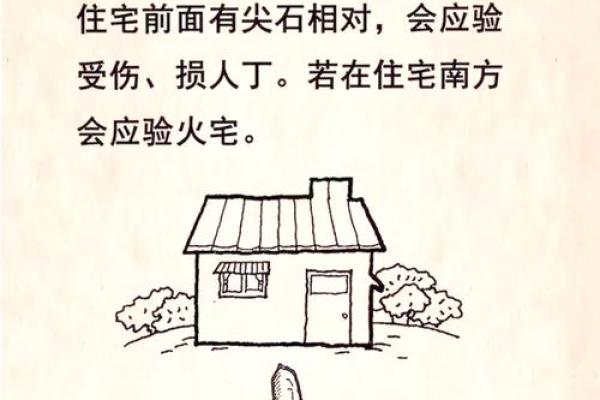 住宅前面有尖石相对，会应验
受伤、损人丁。若在住宅南方
会应验火宅。